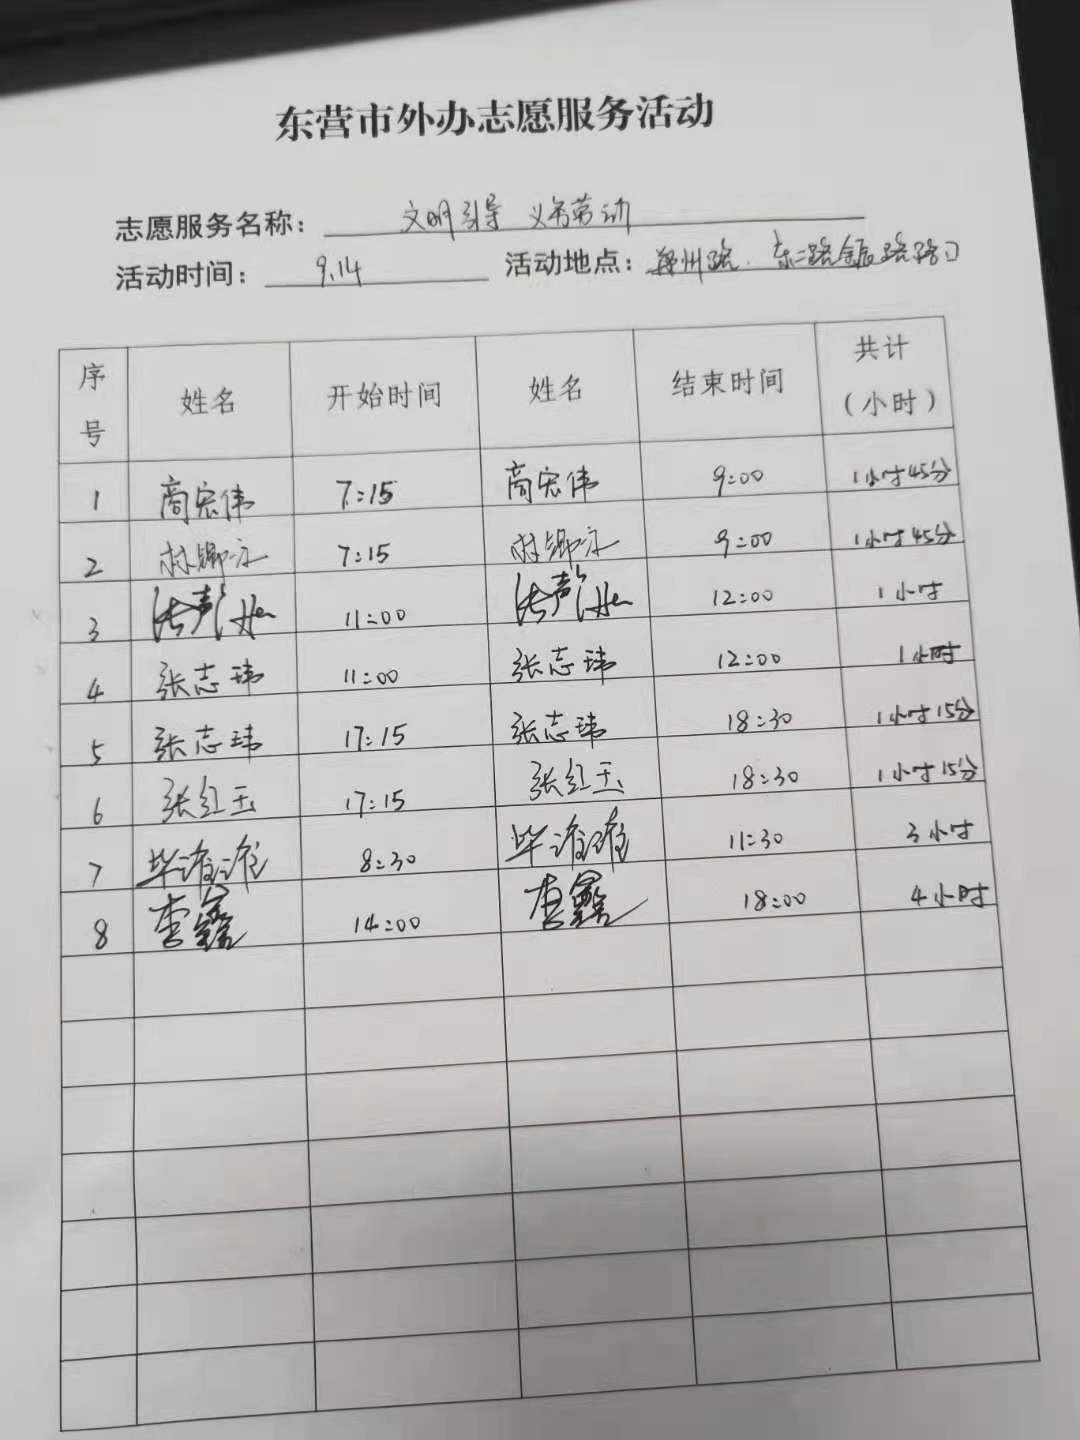 东营市外办志愿服务活动
志愿服务名称： 文明引导 义务劳动
活动时间： 9.14 活动地点： 郑州路、东二路金辰路路口
序号 姓名 开始时间 姓名 结束时间 共计（小时）
1 商宏伟 7:15 商宏伟 9:00 1小时45分
2 林 7:15 林 9:00 1小时45分
3 11:00 12:00 1小时
4 张志玮 11:00 张志玮 12:00 1小时
5 张志玮 17:15 张志玮 18:30 1小时15分
6 张红玉 17:15 张红玉 18:30 1小时15分
7 毕 8:30 毕 11:30 3小时
8 李鑫 14:00 李鑫 18:00 4小时